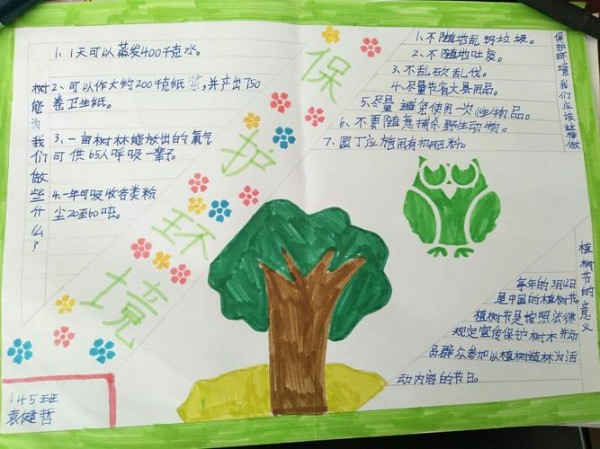 树能为我们做些什么?
1、1天可以蒸发400千克水。
2、可以作大约200千克纸浆,并产出750
卷卫生纸。
3、一亩树林能放出的氧气
可供65人呼吸一辈子。
4、一年可吸收各类粉
尘20至60吨。
保护环境
1、不随地乱扔垃圾。
2、不随地吐痰。
3、不乱砍乱伐。
4、尽量节省文具用品。
5、尽量避免使用一次性物品。
6、不要随意捕杀野生动物。
7、园丁应施用有机肥料。
保护环境我们应该这样做
植树节的意义
每年的3月12日
是中国的植树节。
植树节是按照法律
规定宣传保护树木并动
员群众参加以植树造林为活
动内容的节日。
145班
袁健哲